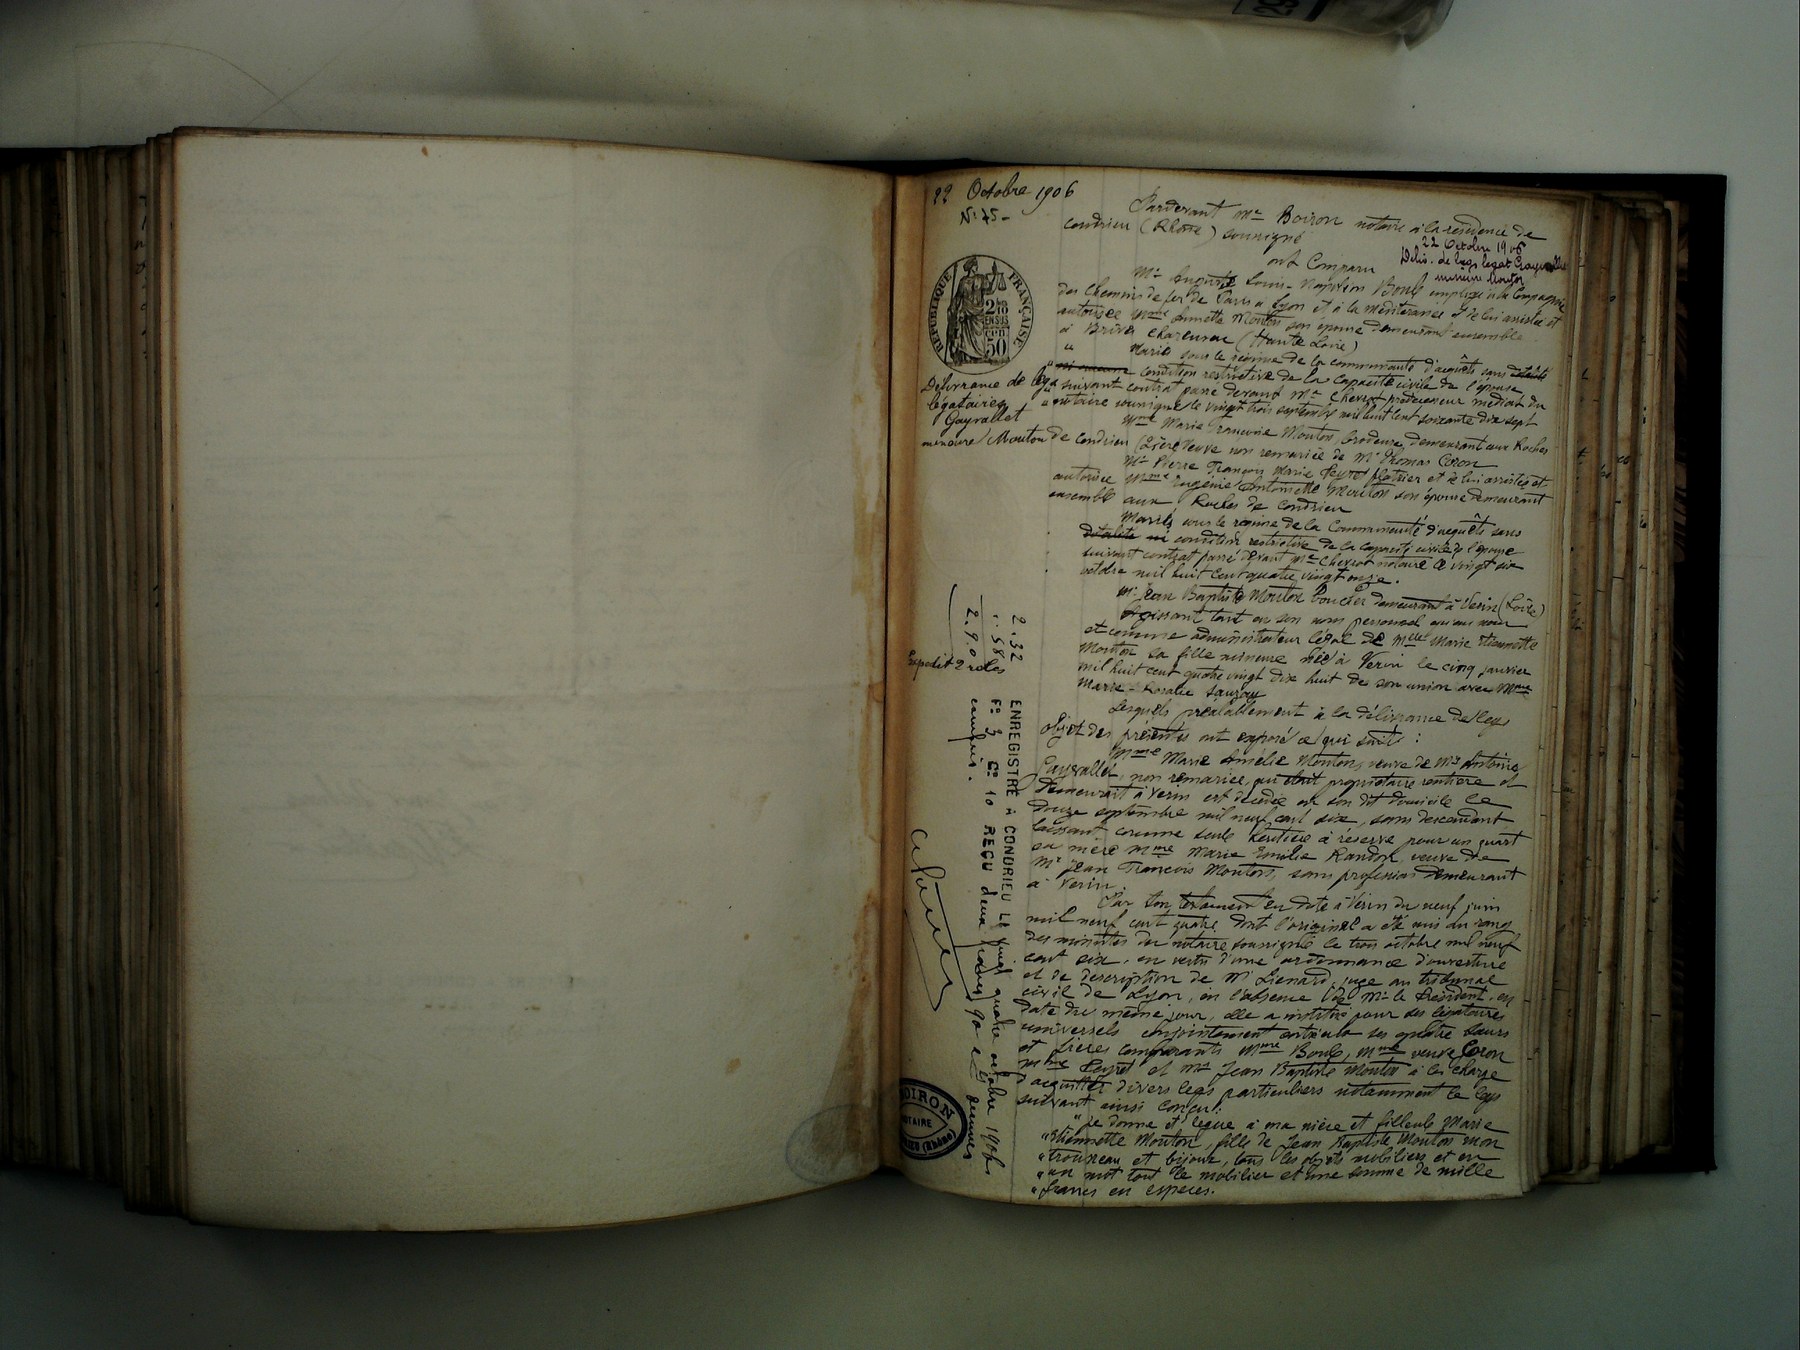 22 Octobre 1906
N° 75 -
Pardevant Me Boiron notaire à la résidence de
Condrieu (Rhône) soussigné
22 Octobre 1906
Déliv. de legs légat Gayvallet
mineure Mouton
ont Comparu
Mr Auguste Louis-Napoléon Boulo employé à la Compagnie
des Chemins de fer de Paris à Lyon et à la méditerranée et de lui assistée et
autorisée Mme Annette Mouton son épouse demeurant ensemble
à Brives Charensac (Haute Loire)
" Mariés sous le régime de la communauté d'acquêts sans dotalité
" ni aucune condition restrictive de la capacité civile de l'épouse
" suivant contrat passé devant Me Chevrot prédécesseur médiat du
" notaire soussigné le vingt trois septembre mil huit cent soixante dix sept
Mme Marie Françoise Mouton, brodeuse, demeurant aux Roches
de Condrieu (Isère) Veuve non remariée de Mr Thomas Coron
Mr Pierre François Marie Peyret plâtrier et de lui assistée et
autorisée Mme Eugénie Antoinette Mouton son épouse demeurant
ensemble aux Roches de Condrieu
Mariés sous le régime de la Communauté d'acquêts sans
dotalité ni condition restrictive de la capacité civile de l'épouse
suivant contrat passé devant Me Chevrot notaire le vingt six
octobre mil huit cent quatre vingt onze.
Mr Jean Baptiste Mouton boucher demeurant à Vérin (Loire)
Agissant tant en son nom personnel qu'au nom
et comme administrateur légal de Melle Marie Etiennette
Mouton sa fille mineure née à Vérin le cinq janvier
mil huit cent quatre vingt dix huit de son union avec Mme
Marie-Rosalie Sauzay
Lesquels préalablement à la délivrance de legs
objet des présentes ont exposé ce qui suit :
Mme Marie Amélie Mouton, veuve de Mr Antoine
Gayvallet, non remariée, qui était propriétaire rentière et
demeurait à Vérin est décédée en son dit domicile le
douze septembre mil neuf cent six, sans descendant
laissant comme seule héritière à réserve pour un quart
sa mère Mme Marie Emilie Randon, veuve de
Mr Jean François Mouton, sans profession demeurant
à Vérin.
Par son testament en date à Vérin du neuf juin
mil neuf cent quatre dont l'original a été mis au rang
des minutes du notaire soussigné le trois octobre mil neuf
cent six, en vertu d'une ordonnance d'ouverture
et de description de Mr Lienard, juge au tribunal
civil de Lyon, en l'absence de Mr le Président, en
date du même jour, elle a institué pour ses légataires
universels conjointement entr'eux ses quatre sœurs
et frères comparants Mme Boulo, Mme veuve Coron
Mme Peyret et Mr Jean Baptiste Mouton à la charge
d'acquitter divers legs particuliers notamment le legs
suivant ainsi conçu :
" Je donne et lègue à ma nièce et filleule Marie
" Etiennette Mouton, fille de Jean Baptiste Mouton mon
" trousseau et bijoux, tous les objets mobiliers et en
" un mot tout le mobilier et une somme de mille
" francs en espèces.
RÉPUBLIQUE FRANÇAISE
2/10
EN SUS
50
Délivrance de legs
légataires
Gayvallet
mineure Mouton
Expédié 2 rôles
2.32
..58
2.90
ENREGISTRÉ À CONDRIEU LE vingt quatre octobre 1906
Fo 3 Co 10 REÇU deux francs 90 centimes décimes
compris.
BOIRON
NOTAIRE
(Rhône)